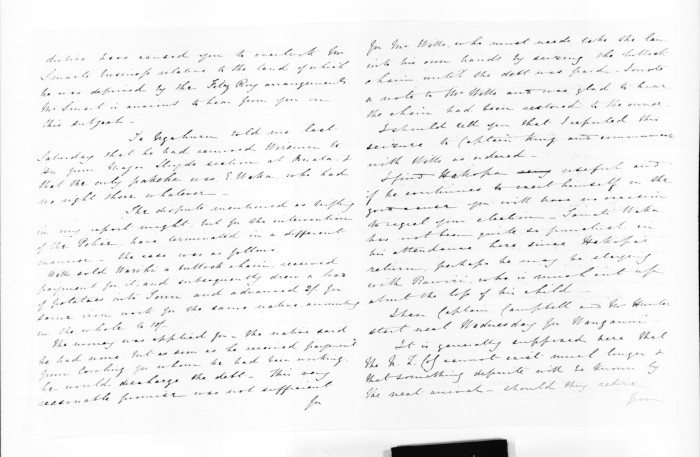 duties have caused you to overlook Mr
Smarts business relative to the land of which
he was deprived by the Fitz Roy arrangements
Mr Smart is anxious to hear from you on
this subject –
Te Ngahuru told me last
Saturday that he had removed Wiremu to
from Major section at &
that the only pakeha was E Waka who had
no right there whatever –
The dispute mentioned as trifling
in my report might, but for the intervention
of the Police, have terminated in a different
manner – the case was as follows
Wotts sold a bullock chain, received
payment for it, and subsequently drew a load
of potatoes into Town and advanced 2/ for
some iron work for the same native, amounting
in the whole to
The money was applied for – the native said
he had none but as soon as he received payment
from Cowling for whom he had been working,
he would discharge the debt – This very
reasonable promise was not sufficient
for
for Mr Wotts, who must needs take the law
into his own hands by seizing the bullock
chain until the debt was paid – I wrote
a note to Mr Wotts and was glad to hear
the chain had been restored to the owner.
I should tell you that I reported this
seizure to Captain King and
with Wotts as ordered –
I find Hakopa useful and
if he continues to exert himself in the
good cause you will have no occasion
to regret your election – Tamati Waka
has not been quite so punctual in
his attendance here since Hakopa's
return, perhaps he may be staying
with Rawiri, who is much cut up
about the loss of his child –
I hear Captain Campbell and Mr Hunter
start next Wednesday for Wanganui
It is generally supposed here that
the N. Z. Coy cannot exist much longer &
that something definite will be known by
the next arrival – should they retire
from